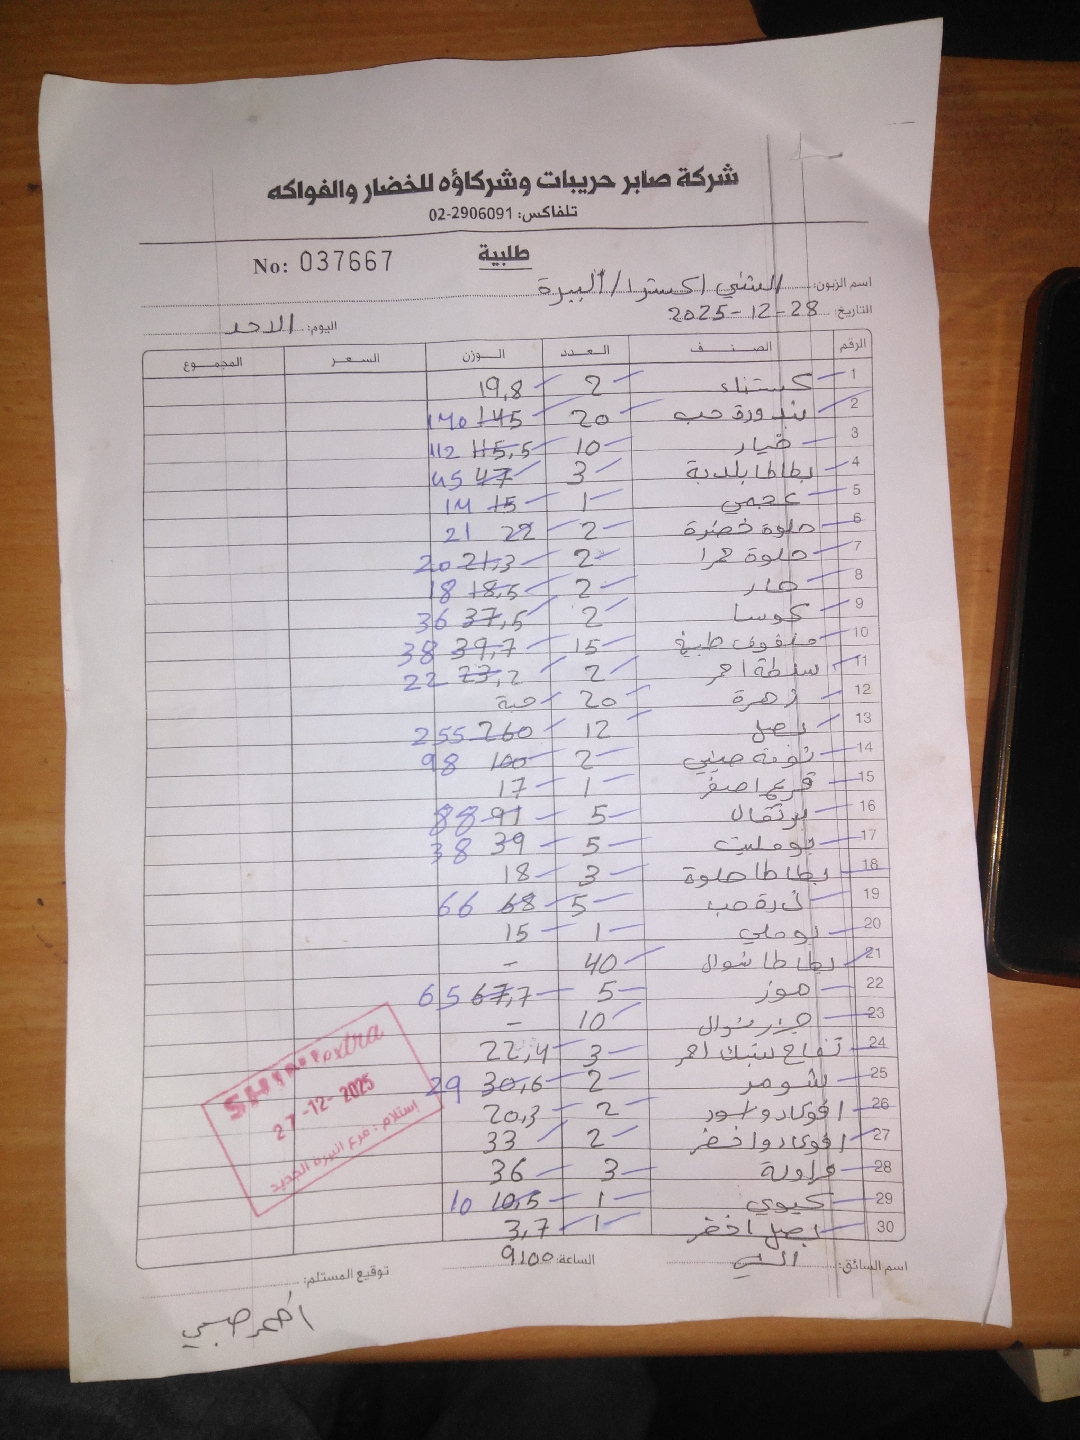 شركة صابر حريبات وشركاؤه للخضار والفواكه
تلفاكس: 02-2906091
طلبية
No: 037667
اسم الزبون: الشني اكسترا / البيرة
التاريخ: 28-12-2025 اليوم: الاحد
الرقم الصنف العدد الوزن السعر المجموع
1 كستناء 2 19,8
2 بندورة حب 20 145 140
3 خيار 10 115,5 112
4 بطاطا بلدية 3 47 45
5 عجمي 1 15 14
6 حلوة خضرة 2 22 21
7 حلوة حمرا 2 21,3 20
8 حار 2 18,5 18
9 كوسا 2 37,5 36
10 ملفوف طبيخ 15 39,7 38
11 سلطة احمر 2 23,2 22
12 زهرة 20 حبة
13 بصل 12 260 255
14 ثومة صيني 2 100 98
15 قرع اصفر 1 17
16 برتقال 5 91 88
17 بومليت 5 39 38
18 بطاطا حلوة 3 18
19 ذرة حب 5 68 66
20 بوملي 1 15
21 بطاطا شوال 40 -
22 موز 5 67,7 65
23 جزر شوال 10 -
24 تفاح ستيك احمر 3 22,4
25 شومر 2 30,6 29
26 افوكادو اسود 2 20,3
27 افوكادو اخضر 2 33
28 فراولة 3 36
29 كيوي 1 10,5 10
30 بصل اخضر 1 3,7
اسم السائق: الساعة: 9:00 توقيع المستلم:
احمد صبحي
Shini extra
27-12-2025
إستلام: فرع البيرة الجديد